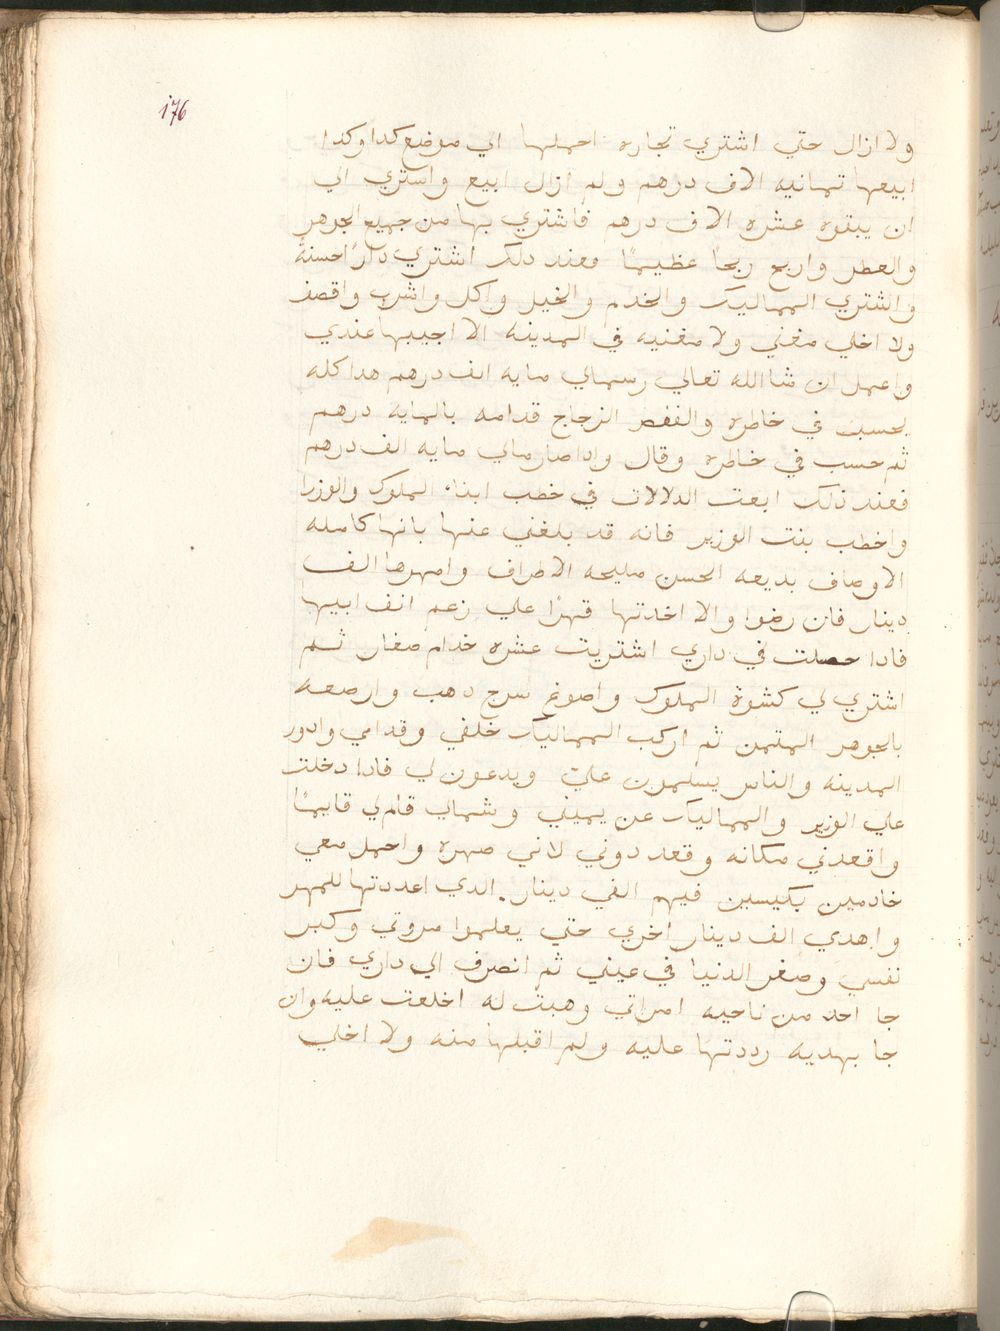 176
ولا ازال حتي اشتري تجاره احملها الي موضع كدا وكدا
ابيعها تمانيه الاف درهم ولم ازال ابيع واستري الي
ان يبقوه عشره الاف درهم فاشتري بها من جميع الجوهر
والعطر واربح ربحًا عظيمًا معند دلك اشتري دارًا حسنة
واشتري المماليك والخدم والخيل واكل واشرب واقصف
ولا اخلي مغني ولا مغنيه في المدينه الا اجيبها عندي
واعمل ان شا الله تعالي رسمالي مايه الف درهم هدا كله
يحسب في خاطره والقفص الزجاج قدامه بالمايه درهم
ثم حسب في خاطره وقال وادا صار مالي مايه الف درهم
فعند ذلك ابعت الدلالات في خطب ابنا الملوك والوزرا
واخطب بنت الوزير فانه قد بلغني عنها بانها كامله
الاوصاف بديعه الحسن مليحه الاطراف وامهرها الف
دينار فان رضوا والا اخدتها قهرًا علي زعم انف ابيها
فادا حصلت في داري اشتريت عشره خدام صغار ثم
اشتري لي كشوة الملوك واصوغ سرج دهب وارصعه
بالجوهر المتمن ثم اركب المماليك خلفي وقدامي وادور
المدينه والناس يسلمون عليّ ويدعون لي فادا دخلت
علي الوزير والمماليك عن يميني وشمالي قام لي قايمًا
واقعدني مكانه وقعد دوني لاني صهره واحمل معي
خادمين بكيسين فيهم الفي دينار الدي اعددتها للمهر
واهدي الف دينار اخري حتي يعلموا مروتي وكبر
نفسي وصغر الدنيا في عيني ثم انصرف الي داري فان
جا احد من ناحيه امراتي وهبت له اخلعت عليه وان
جا بهديه رددتها عليه ولم اقبلها منه ولا اخلي